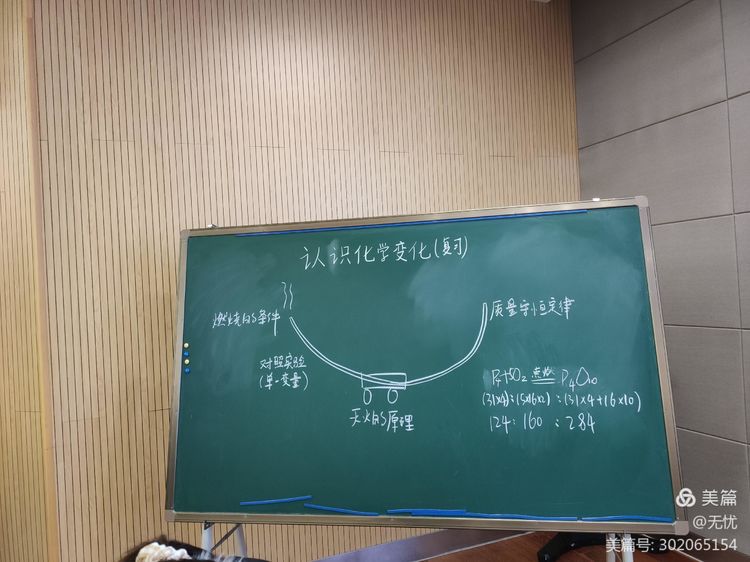 认识化学变化(复习)
燃烧的条件
质量守恒定律
对照实验
(单一变量)
灭火的原理
P₄+5O₂ 点燃 P₄O₁₀
(31×4):(5×16×2):(31×4+16×10)
124:160:284
美篇
@无忧
美篇号: 302065154